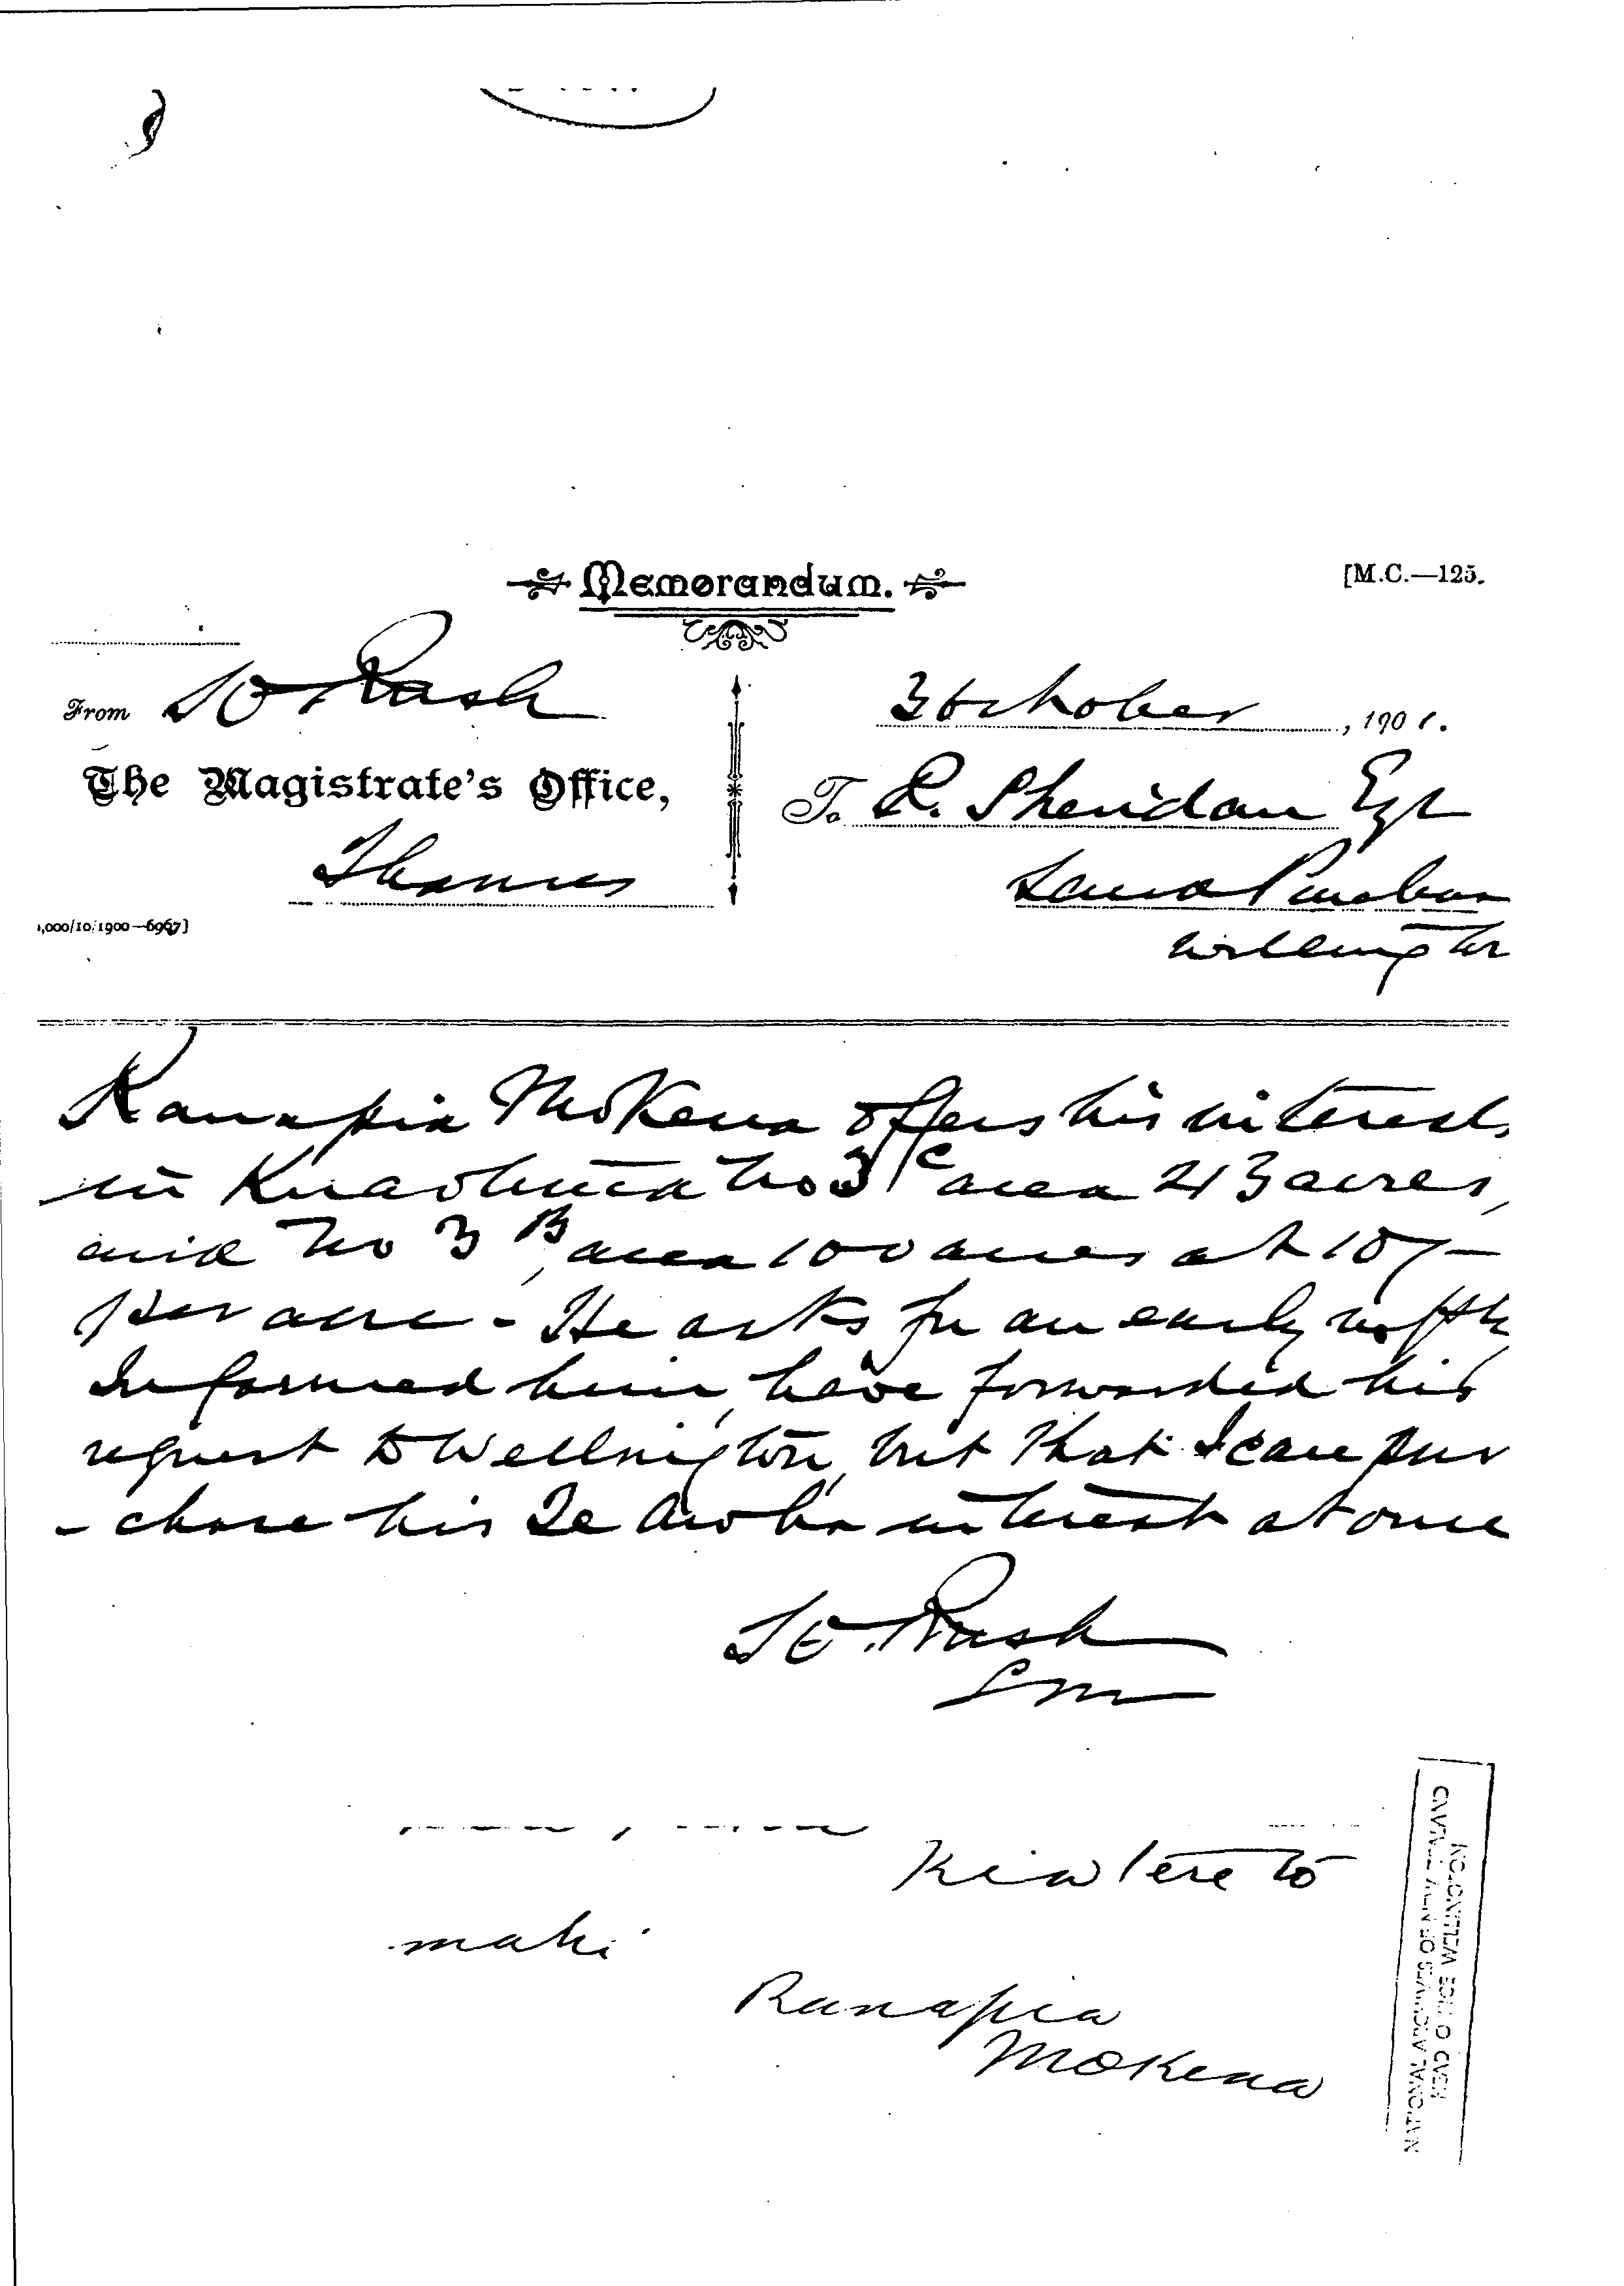 Memorandum.
[M.C.—125.
From Rush
3 October, 1901.
The Magistrate's Office,
To R. Sheridan Esq
Thames
Land Purchase
,000/10/1900—6967]
Wellington
Ranapia Mokena offers his interests
in No 3C area 213 acres,
and No 3B, area 100 acres at 10/-
per acre - He asks for an early
Informed him, have forwarded his
request to Wellington, but that I can pur
- chase his Te Aroha interest at once
Rush
SM
Kia tere to
mahi
Ranapia
Mokena
NATIONAL ARCHIVES OF NEW ZEALAND
HEAD OFFICE WELLINGTON